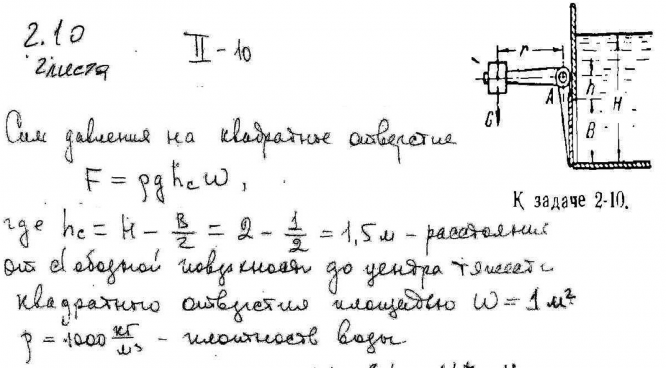 2.10
2 листа
II-10
r
A
h
H
B
G
К задаче 2-10.
Сила давления на квадратное отверстие
F = ρghcω,
где hc = H - B/2 = 2 - 1/2 = 1,5 м - расстояния
от свободной поверхности до центра тяжести
квадратного отверстия площадью ω = 1 м²
ρ = 1000 кг/м³ - плотность воды